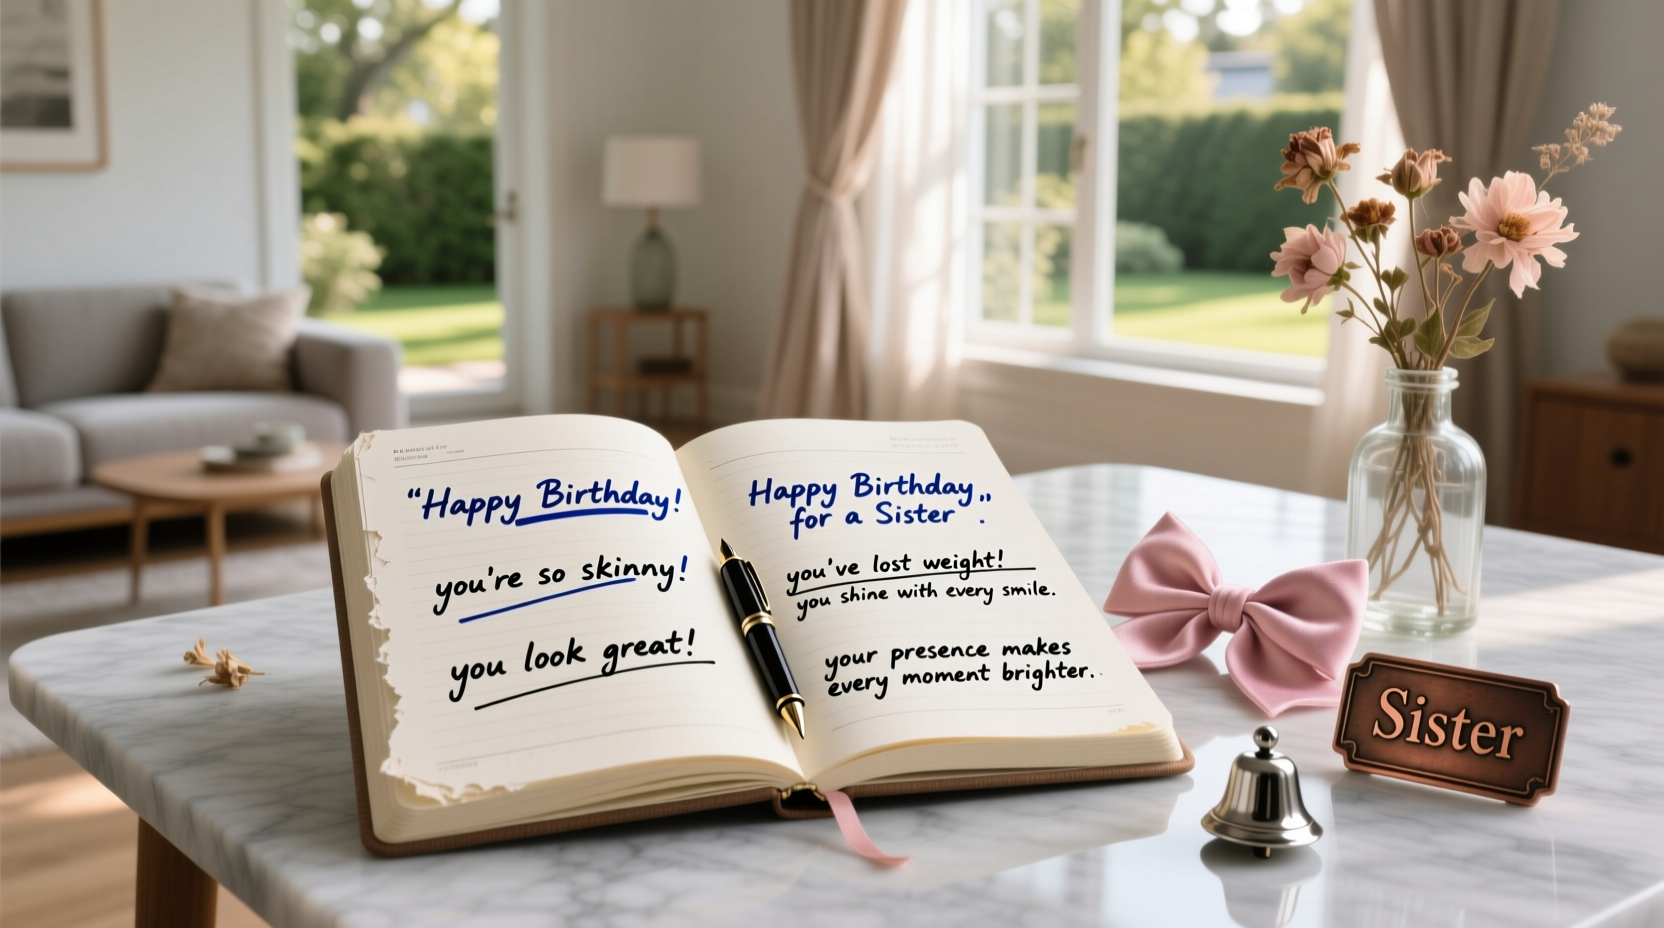 “Happy Birthday!
you're so skinny!
you look great!
Happy Birthday„
for a Sister .
you've lost weight!
you shine with every smile.
your presence makes
every moment brighter.
Sister